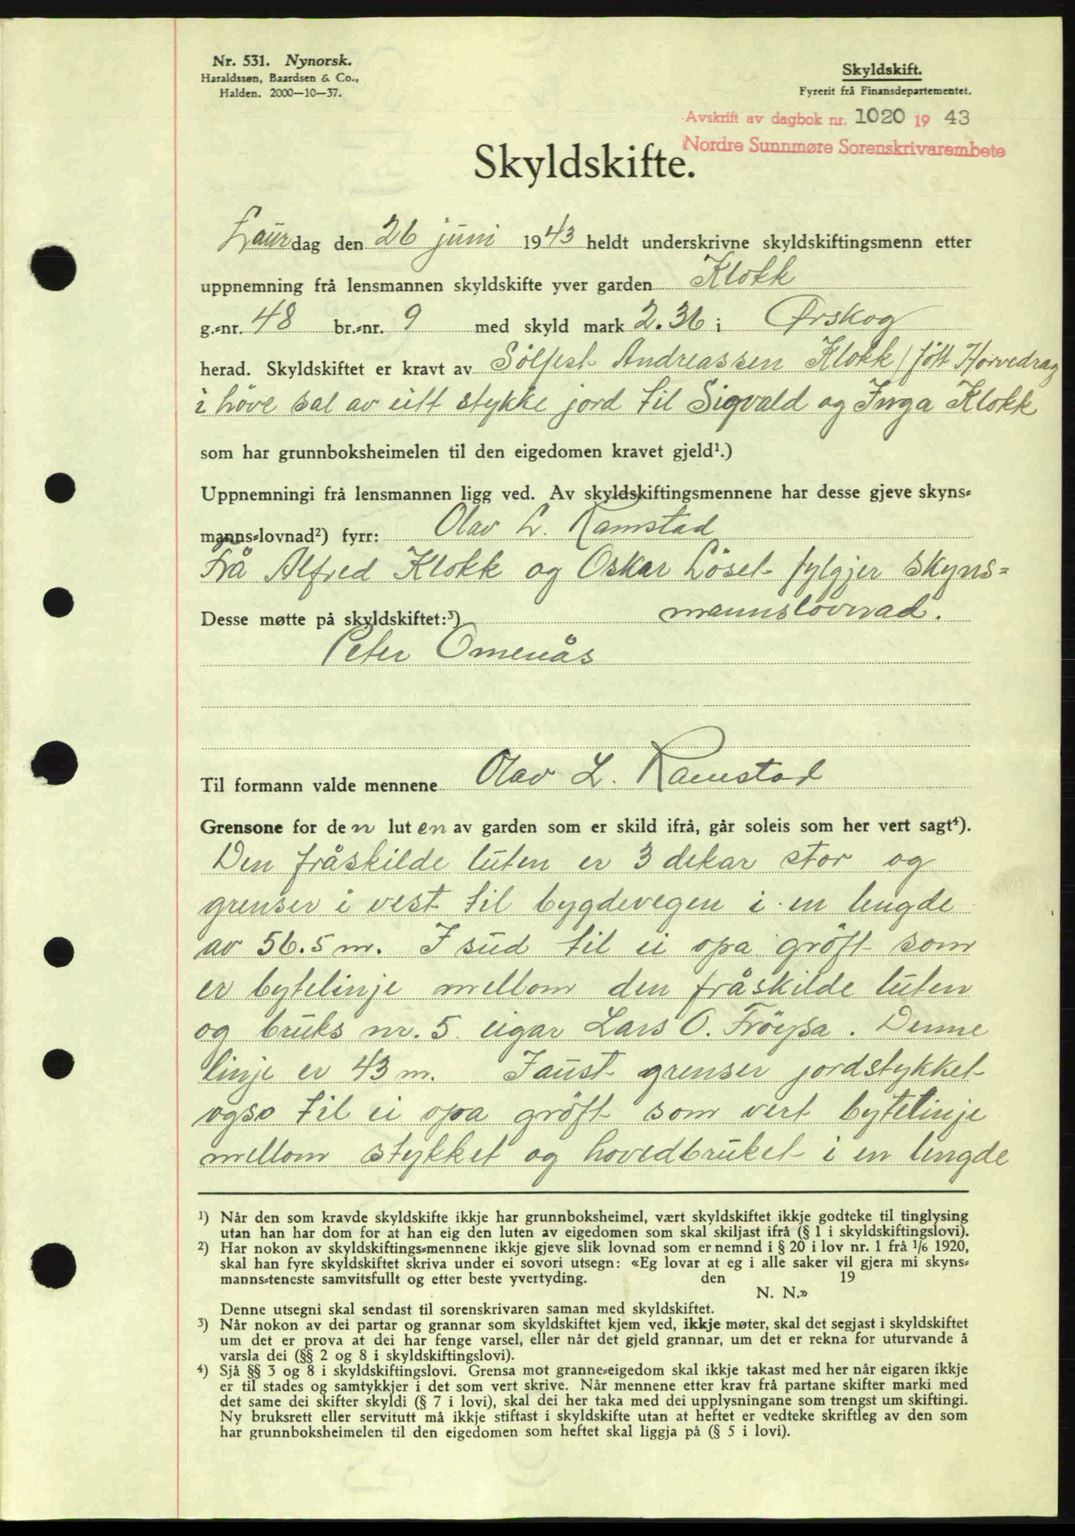 Nr. 531. Nynorsk.
Haraldssen, Baardsen & Co.,
Halden. 2000—10—37.
Skyldskift.
Fyrerit frå Finansdepartementet.
Avskrift av dagbok nr. 1020 19 43
Nordre Sunnmøre Sorenskrivarembete
Skyldskifte.
Laurdag den 26 juni 1943 heldt underskrivne skyldskiftingsmenn etter
uppnemning frå lensmannen skyldskifte yver garden Klokk
g.-nr. 48 br.-nr. 9 med skyld mark 2.36 i Ørskog
herad. Skyldskiftet er kravt av Sölfest Andreassen Klokk / föłt Horvedrag
i höve sal av eitt stykke jord til Sigvald og Inga Klokk
som har grunnboksheimelen til den eigedomen kravet gjeld¹.)
Uppnemningi frå lensmannen ligg ved. Av skyldskiftingsmennene har desse gjeve skyns-
manns-lovnad²) fyrr: Olav L. Ramstad
Frå Alfred Klokk og Oskar Löset fylgjer skyns-
mannslovnad.
Desse møtte på skyldskiftet:³)
Peter Omenås
Til formann valde mennene Olav L. Ramstad
Grensone for den luten av garden som er skild ifrå, går soleis som her vert sagt⁴).
Den fråskilde luten er 3 dekar stor og
grenser i vest til bygdevegen i en lengde
av 56.5 m. I süd til ei opa gröft som
er bytelinje mellom den fråskilde luten
og bruks nr. 5 eigar Lars O. Fröysa. Denne
linje er 43 m. I aust grenser jordstykket
ogso til ei opa gröft som vert bytelinje
mellom stykket og hovedbruket i en lengde
¹) Når den som kravde skyldskifte ikkje har grunnboksheimel, vært skyldskiftet ikkje godteke til tinglysing
utan han har dom for at han eig den luten av eigedomen som skal skiljast ifrå (§ 1 i skyldskiftingslovi).
²) Har nokon av skyldskiftings-mennene ikkje gjeve slik lovnad som er nemnd i § 20 i lov nr. 1 frå 1/6 1920,
skal han fyre skyldskiftet skriva under ei sovori utsegn: «Eg lovar at eg i alle saker vil gjera mi skyns-
manns-teneste samvitsfullt og etter beste yvertyding. den 19
N. N.»
Denne utsegni skal sendast til sorenskrivaren saman med skyldskiftet.
³) Når nokon av dei partar og grannar som skyldskiftet kjem ved, ikkje møter, skal det segjast i skyldskiftet
um det er prova at dei har fenge varsel, eller når det gjeld grannar, um det er rekna for uturvande å
varsla dei (§§ 2 og 8 i skyldskiftingslovi).
⁴) Sjå §§ 3 og 8 i skyldskiftingslovi. Grensa mot granne-eigedom skal ikkje takast med her når eigaren ikkje
er til stades og samtykkjer i det som vert skrive. Når mennene etter krav frå partane skifter marki med
det same dei skifter skyldi (§ 7 i lovi), skal dei her taka med dei upplysningane som trengst um skiftingi.
Ny bruksrett eller servitutt må ikkje stiftast i skyldskifte utan at heftet er vedteke skriftleg av den som
har grunnboksheimelen til den eigedomen som heftet skal liggja på (§ 5 i lovi).